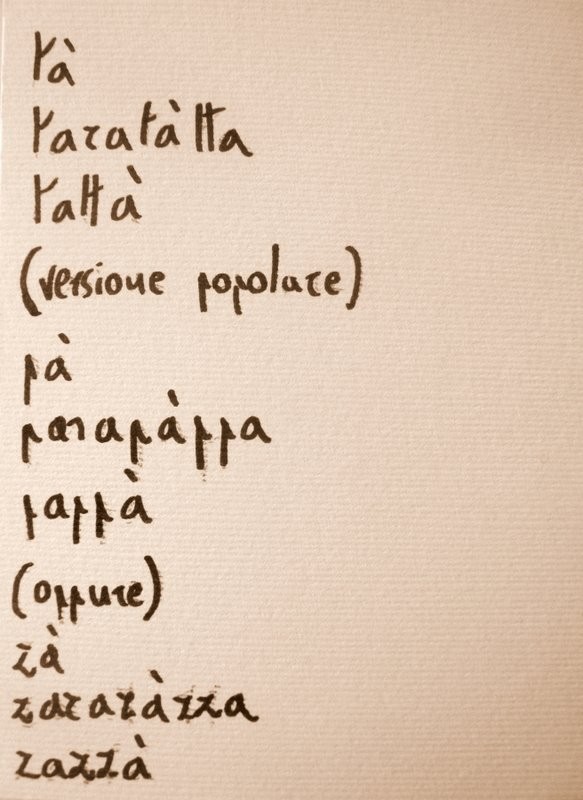 tà
taratàtta
tattà
(versione popolare)
pà
parapàppa
pappà
(oppure)
zà
zarazàzza
zazzà